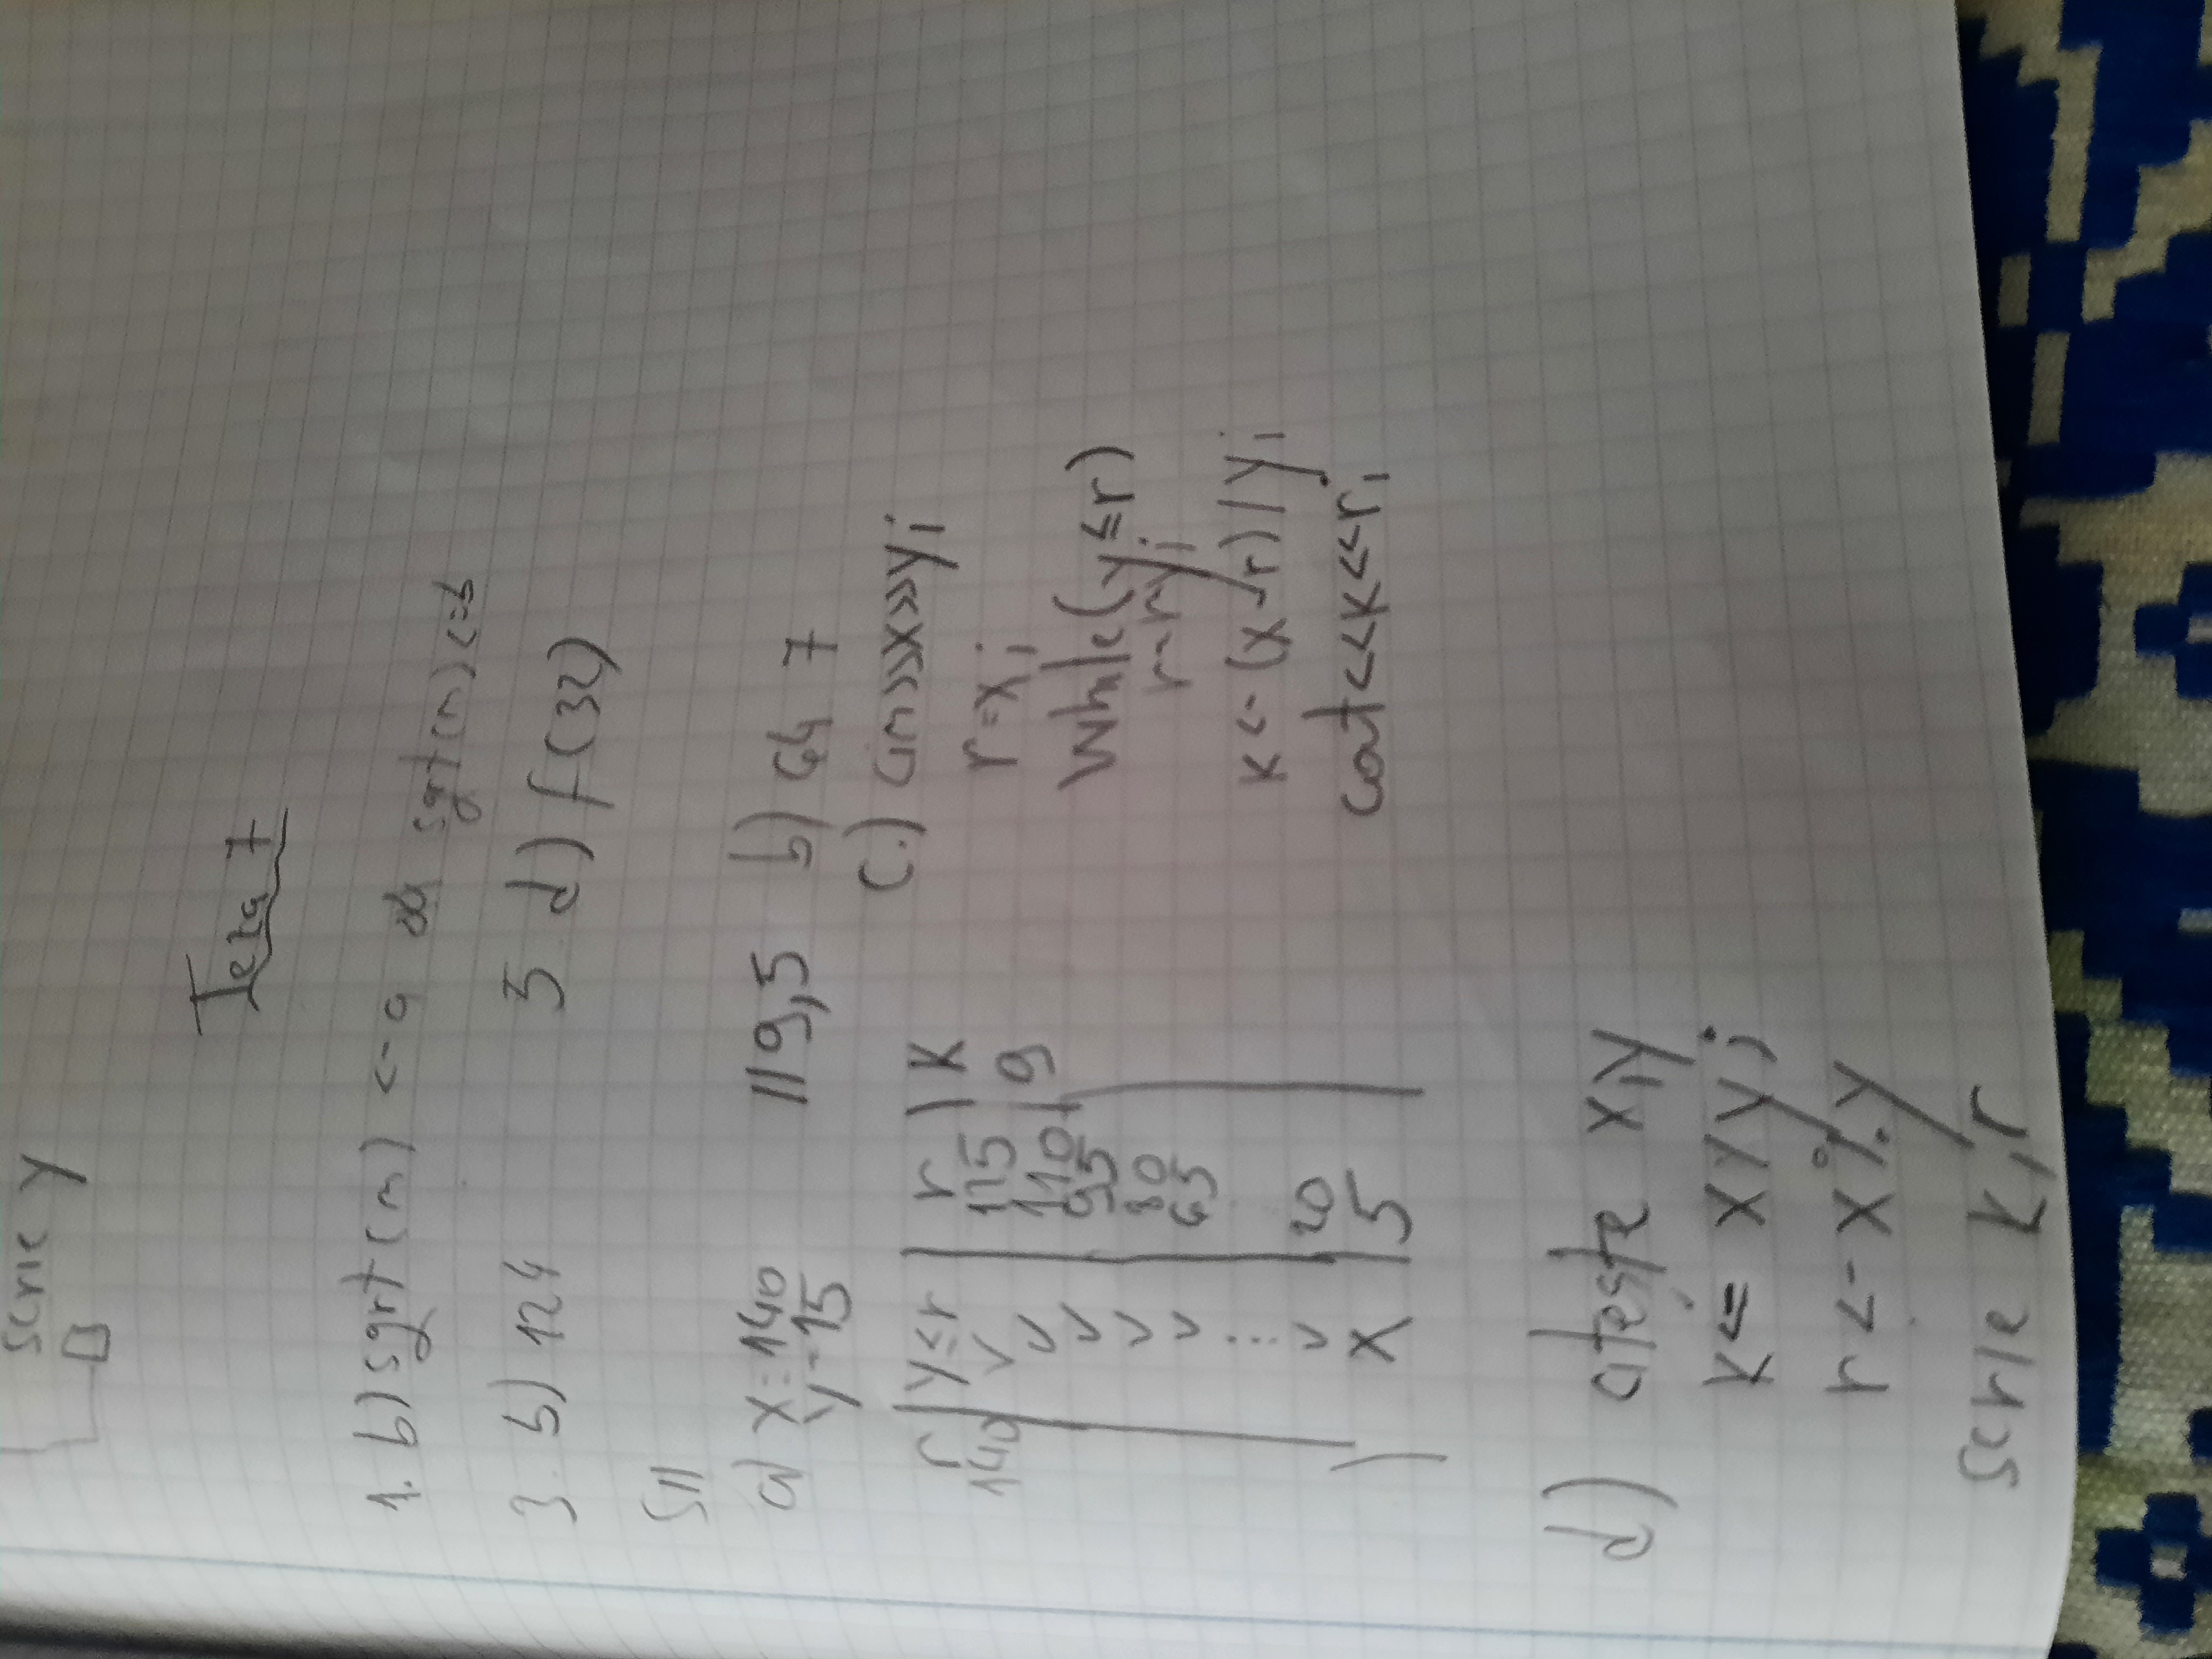 scrie y
Teza 7
1. b) sqrt(n) <- a && sqrt(n) <= b
3. b) 124 5 d) f(32)
SII
a) x=140 // 9,5 b) 64 7
y=15
c.) cin>>x>>y;
r | y≤r | r | K
140 ✓ 125 9
✓ 110
✓ 95
✓ 80
✓ 65
⋮
✓ 20
X 5
r=x;
While(y≤r)
r-r-y;
k <- (x-r)/y;
cout<<k<<r;
d) citeste x,y
k <= x/y;
r <- x%y
scrie k,r